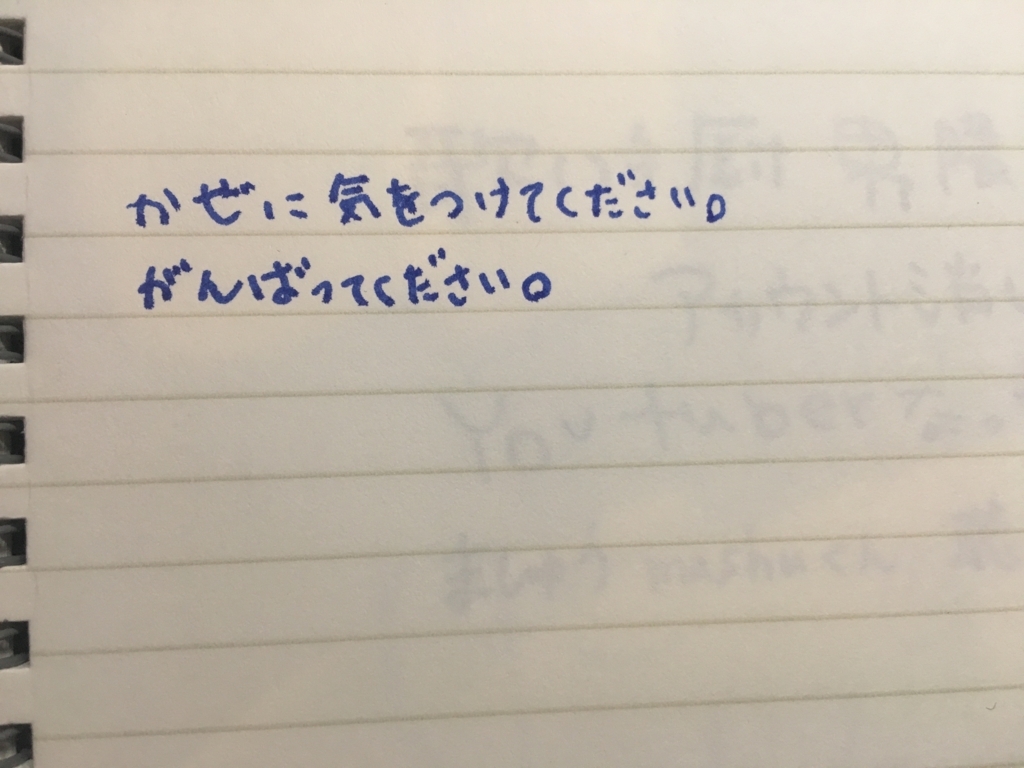 かぜに気をつけてください。
がんばってください。